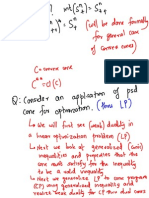 ? int(S₊ⁿ) = S₊₊ⁿ
(S₊ⁿ)* = S₊ⁿ (will be done formally
for general case
of convex cones)
C = convex cone
C** = cl(C)
Q: Consider an application of psd
cone for optimization. (thru LP)
We will first see (weak) duality in
a linear optimization problem (LP)
Next we look at generalized (conic)
inequalities and properties that the
cone must satisfy for the
to be a valid inequality
Next we generalize LP to conic program
(CP) using generalized inequality and
realize weak duality for CP thru dual cones